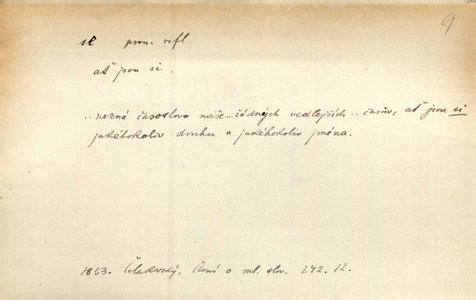 9
se pron. refl.
ať jsou si.
..nezná časoslovo naše...žádných vedlejších...časův, ať jsou si
jakéhokoliv druhu a jakéhokoliv jména.
1853. Čelakovský, Čtení o ml. slov. 242.12.